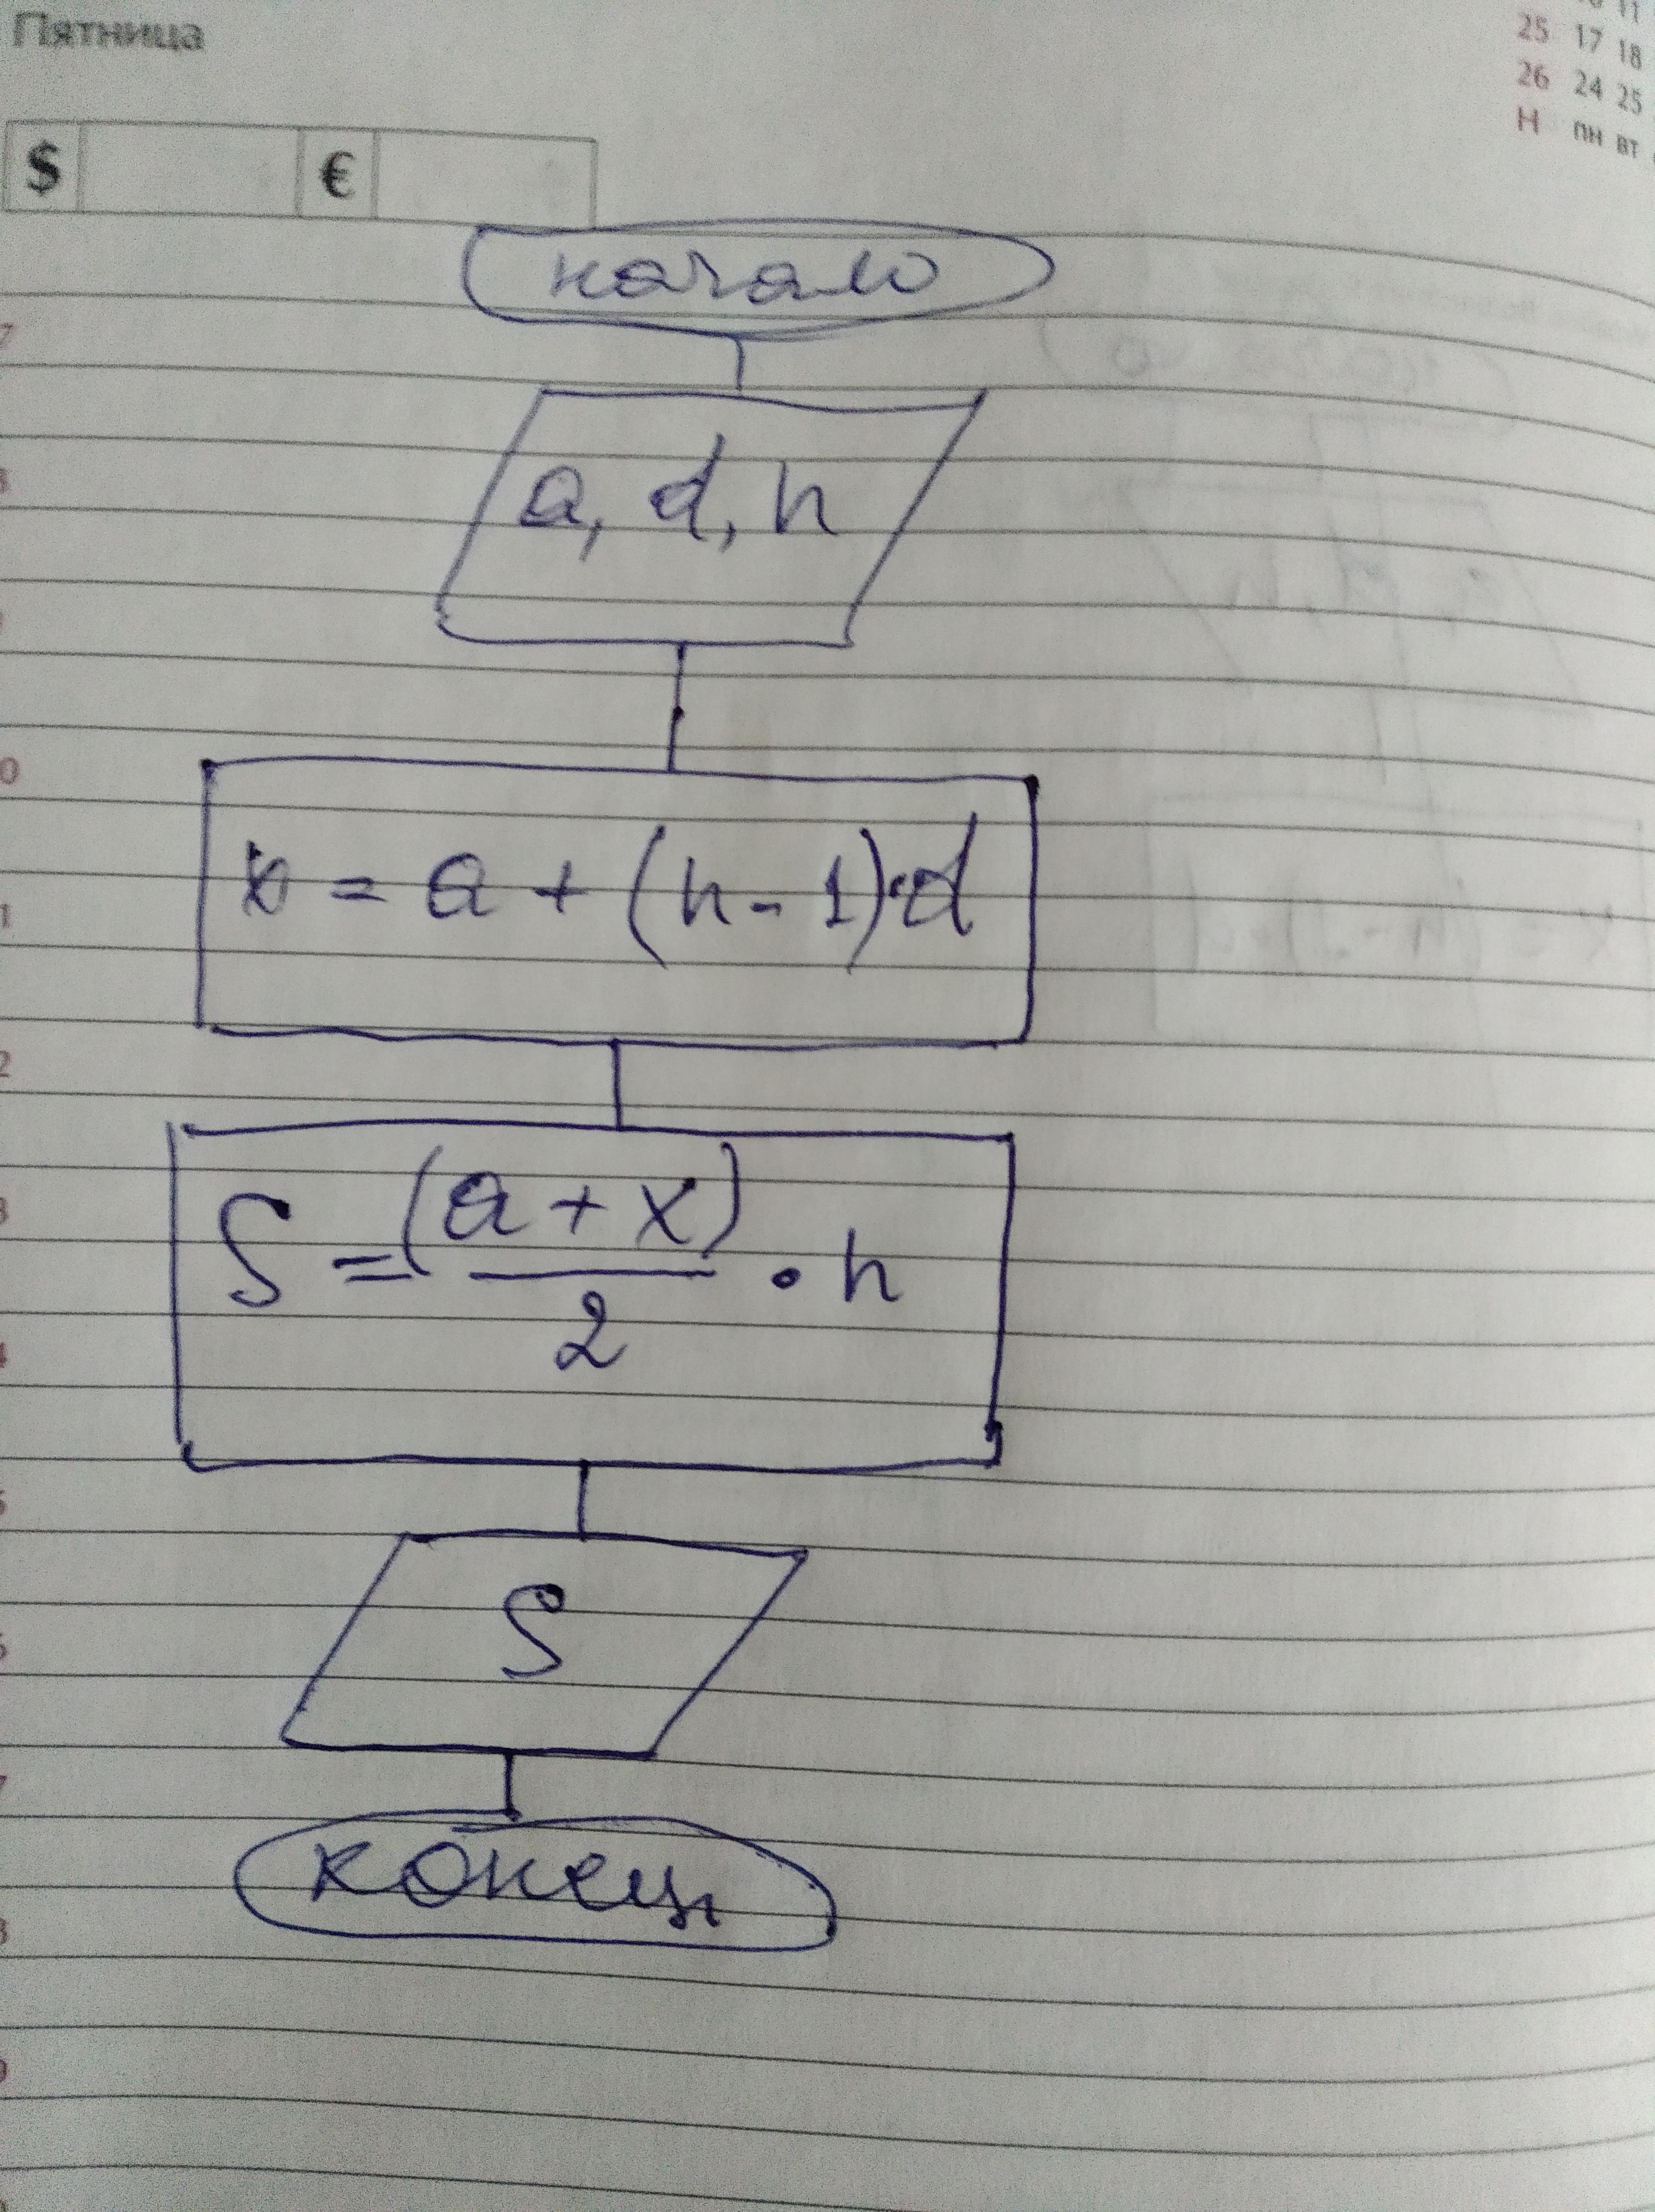 Пятница
11
25 17 18
26 24 25
Н пн вт
$ €
начало
a, d, n
x = a + (n - 1)·d
S = (a + x)
2
· n
S
конец